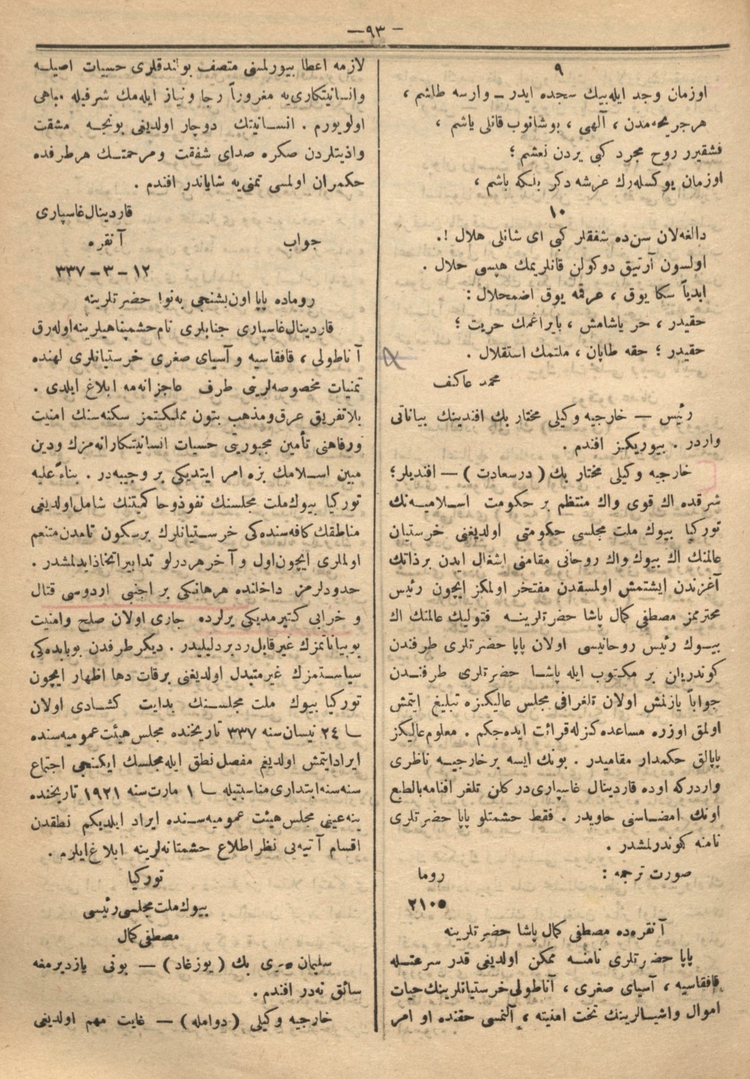 — ٩٣ —
٩
اوزمان وجد ايله بيك سجده ايدر ــ وارسه طاشم ،
هرجريحه‌مدن ، آلهى ، بوشانوب قانلى ياشم ،
فشقيرر روح مجرد كبى يردن نعشم ؛
اوزمان يوكسله‌رك عرشه دكر بلكه باشم ،
١٠
دالغه‌لان سن‌ده شفقلر كبى اى شانلى هلال !.
اولسون آرتيق دوكولن قانلريمك هپسى حلال .
ابدياً سكا يوق ، عرقمه يوق اضمحلال :
حقيدر ، حر ياشامش ، بايراغمك حريت ؛
حقيدر ؛ حقه طاپان ، ملتمك استقلال .
محمد عاكف
رئيس — خارجيه وكيلى مختار بك افندينك بياناتى
واردر . بيوريكز افندم .
خارجيه وكيلى مختار بك ( درسعادت ) — افنديلر؛
شرقده اك قوى واك منتظم بر حكومت اسلاميه‌نك
توركيا بيوك ملت مجلسى حكومتى اولديغنى خرستيان
عالمنك اك بيوك واك روحانى مقامنى اشغال ايدن برذاتك
آغزندن ايشتمش اولمسقدن مفتخر اولمكز ايچون رئيس
محترمز مصطفى كمال پاشا حضرتلرينه قتوليك عالمنك اك
بيوك رئيس روحانيسى اولان پاپا حضرتلرى طرفندن
كوندريلن بر مكتوب ايله پاشا حضرتلرى طرفندن
جواباً يازلمش اولان تلغرافى مجلس عاليكزه تبليغ ايتمش
اولمق اوزره مساعده‌كزله قرائت ايده‌جكم . معلوم عاليكز
پاپالق حكمدار مقاميدر . بونك ايسه بر خارجيه ناظرى
واردركه اوده قاردينال غاسپارى‌در كلن تلغرافنامه بالطبع
اونك امضاسنى حاويدر . فقط حشمتلو پاپا حضرتلرى
نامنه كوندرلمشدر .
صورت ترجمه : روما
٢١٠٥
آنقره‌ده مصطفى كمال پاشا حضرتلرينه
پاپا حضرتلرى نامنه ممكن اولديغى قدر سرعتله
قافقاسيه ، آسياى صغرى ، آناطولى خرستيانلرينك حيات
اموال واشيالرينك تحت امنيته ، آلنمسى حقنده او امر
لازمه اعطا بيورلمسنى متصف بولندقلرى حسيات اصيله
وانسانيتكارى‌يه مغروراً رجا ونياز ايله‌مك شرفيله مباهى
اولويورم . انسانيتك دوچار اولديغى بونجه مشقت
واذيتلردن صكره صداى شفقت ومرحمتك هر طرفده
حكمران اولمسى تمنى‌يه شاياندر افندم .
قاردينال غاسپارى
جواب آنقره
١٢ — ٣ — ٣٣٧
روماده پاپا اون بشنجى به‌نوا حضرتلرينه
قاردينال غاسپارى جنابلرى نام حشمتپناهيلرينه اوله‌رق
آناطولى ، قافقاسيه و آسياى صغرى خرستيانلرى لهنده
تمنيات مخصوصه‌لرينى طرف عاجزانه‌مه ابلاغ ايلدى .
بلاتفريق عرق ومذهب بتون مملكتمز سكنه‌سنك امنيت
ورفاهنى تأمين مجبوريتى حسيات انسانيتكارانه‌مزك ودين
مبين اسلامك بزه امر ايتديكى بر وجيبه‌در . بناءً عليه
توركيا بيوك ملت مجلسنك نفوذ وحاكميتنك شامل اولديغى
مناطقك كافه‌سنده‌كى خرستيانلرك بر سكون تامدن متنعم
اولملرى ايچون اول و آخر هر درلو تدابير اتخاذ ايدلمشدر .
حدودلرمز داخلنده هرهانكى بر اجنبى اردوسى قتال
و خرابى كتيرمديكى يرلرده جارى اولان صلح وامنيت
بوبياناتمزك غيرقابل رد بر دليليدر . ديكر طرفدن بوبابده‌كى
سياستمزك غيرمتبدل اولديغنى برقات دها اظهار ايچون
توركيا بيوك ملت مجلسنك بدايت كشادى اولان
ــا ٢٤ نيسان سنه ٣٣٧ تاريخنده مجلس هيئت عموميه‌سنده
ايراد ايتمش اولديغم مفصل نطق ايله مجلسك ايكنجى اجتماع
سنه‌سنه ابتدارى مناسبتيله ــا ١ مارت سنه ١٩٢١ تاريخنده
ينه عينى مجلس هيئت عموميه‌سنده ايراد ايلديكم نطقدن
اقسام آتيه‌يى نظر اطلاع حشمتانه‌لرينه ابلاغ ايلرم .
توركيا
بيوك ملت مجلسى رئيسى
مصطفى كمال
سليمان سرى بك ( يوزغاد ) — بونى يازديرمغه
سائق نه‌در افندم .
خارجيه وكيلى ( دوامله ) — غايت مهم اولديغنى